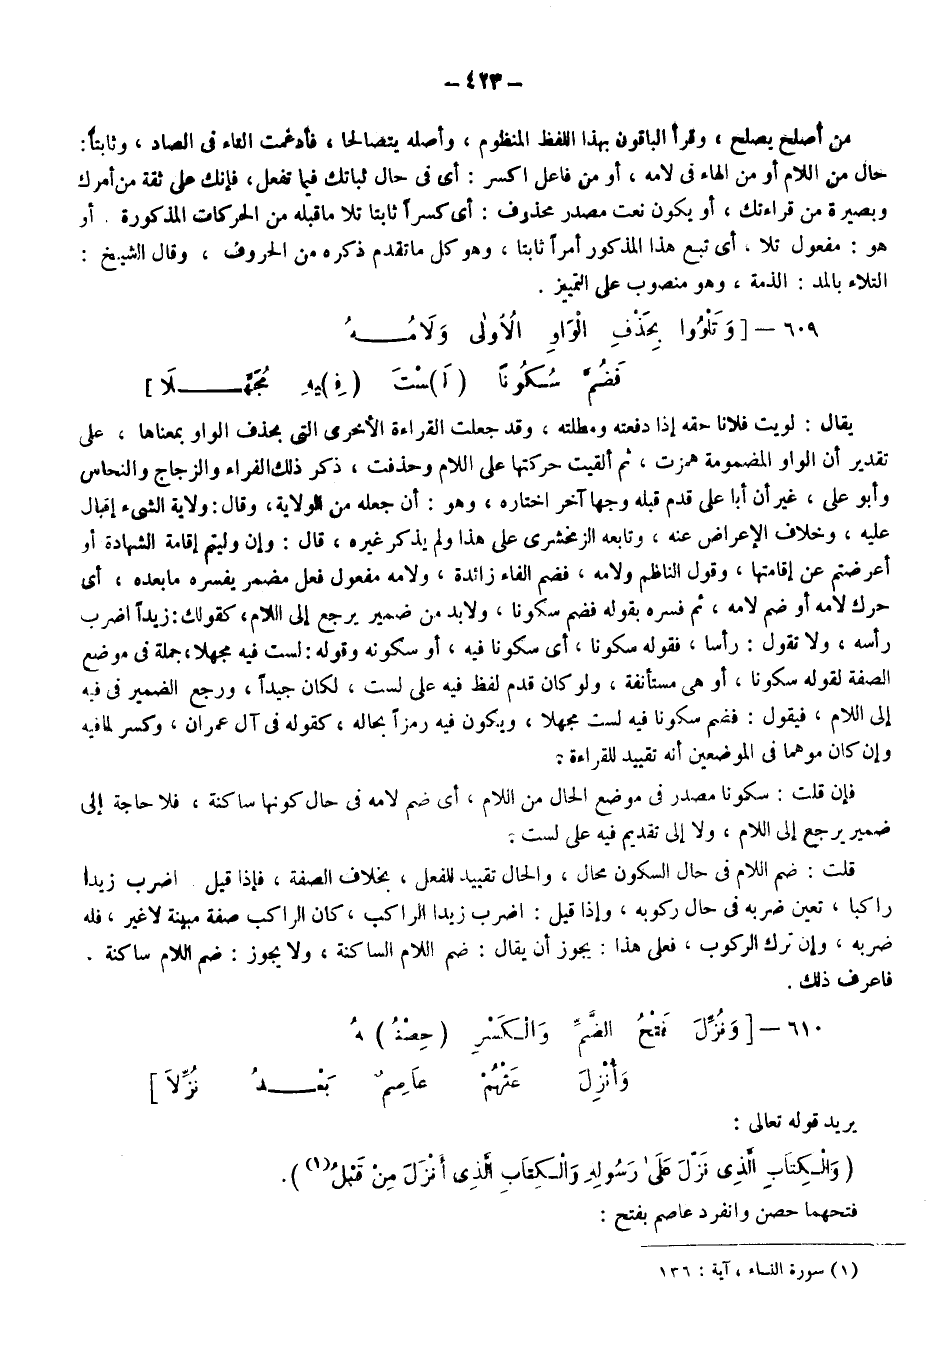 – ٤٢٣ –
من أصلح يصلح ، وقرأ الباقون بهذا اللفظ المنظوم ، وأصله يتصالحا ، فأدغمت التاء فى الصاد ، وثابتاً:
حال من اللام أو من الهاء فى لامه ، أو من فاعل اكسر : أى فى حال ثباتك فيما تفعل، فإنك على ثقة من أمرك
وبصيرة من قراءتك ، أو يكون نعت مصدر محذوف : أى كسراً ثابتا تلا ماقبله من الحركات المذكورة . أو
هو : مفعول تلا . أى تبع هذا المذكور أمراً ثابتا ، وهو كل ماتقدم ذكره من الحروف ، وقال الشيخ :
التلاء بالمد : الذمة ، وهو منصوب على التمييز .
٦٠٩ – [ وَتَلْوُوا بِحَذْفِ الْوَاوِ الْأُولَى وَلَامُــــهُ
فَضُمَّ سُكُونًا (لَـ)ـسْتَ (فِـ)ـيهِ مُجَهَّــــلَا ]
يقال : لويت فلانا حقه إذا دفعته ومطلته ، وقد جعلت القراءة الأخرى التى بحذف الواو بمعناها ، على
تقدير أن الواو المضمومة همزت ، ثم ألقيت حركتها على اللام وحذفت ، ذكر ذلك الفراء والزجاج والنحاس
وأبو على ، غير أن أبا على قدم قبله وجها آخر اختاره ، وهو : أن جعله من الولاية، وقال: ولاية الشىء إقبال
عليه ، وخلاف الإعراض عنه ، وتابعه الزمخشرى على هذا ولم يذكر غيره ، قال : وإن وليتم إقامة الشهادة أو
أعرضتم عن إقامتها ، وقول الناظم ولامه ، فضم الفاء زائدة ، ولامه مفعول فعل مضمر يفسره مابعده ، أى
حرك لامه أو ضم لامه ، ثم فسره بقوله فضم سكونا ، ولابد من ضمير يرجع إلى اللام، كقولك: زيداً اضرب
رأسه ، ولا تقول : رأسا ، فقوله سكونا ، أى سكونا فيه ، أو سكونه وقوله: لست فيه مجهلا، جملة فى موضع
الصفة لقوله سكونا ، أو هى مستأنفة ، ولو كان قدم لفظ فيه على لست ، لكان جيداً ، ورجع الضمير فى فيه
إلى اللام ، فيقول : فضم سكونا فيه لست مجهلا ، ويكون فيه رمزاً بحاله ، كقوله فى آل عمران ، وكسر لمافيه
وإن كان موهما فى الموضعين أنه تقييد للقراءة .
فإن قلت : سكونا مصدر فى موضع الحال من اللام ، أى ضم لامه فى حال كونها ساكنة ، فلا حاجة إلى
ضمير يرجع إلى اللام ، ولا إلى تقديم فيه على لست .
قلت : ضم اللام فى حال السكون محال ، والحال تقييد للفعل ، بخلاف الصفة ، فإذا قيل . اضرب زيدا
راكبا ، تعين ضربه فى حال ركوبه ، وإذا قيل : اضرب زيدا الراكب ، كان الراكب صفة مبينة لاغير ، فله
ضربه ، وإن ترك الركوب ، فعلى هذا : يجوز أن يقال : ضم اللام الساكنة ، ولا يجوز : ضم اللام ساكنة .
فاعرف ذلك .
٦١٠ – [ وَنُزِّلَ فَتْحُ الضَّمِّ وَالْكَسْرِ ( حِصْنُـ ) ـهُ
وَأُنْزِلَ عَنْهُمْ عَاصِمٌ بَعْــــدُ نُزِّلَا ]
يريد قوله تعالى :
( وَالْكِتَابِ الَّذِى نَزَّلَ عَلَى رَسُولِهِ وَالْكِتَابِ الَّذِى أَنْزَلَ مِنْ قَبْلُ(١) ).
فتحهما حصن وانفرد عاصم بفتح :
(١) سورة النساء ، آية : ١٣٦